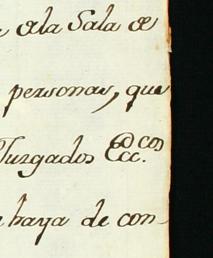 ela Sala de
personas, que
Juzgados Ecc.con
haya de con